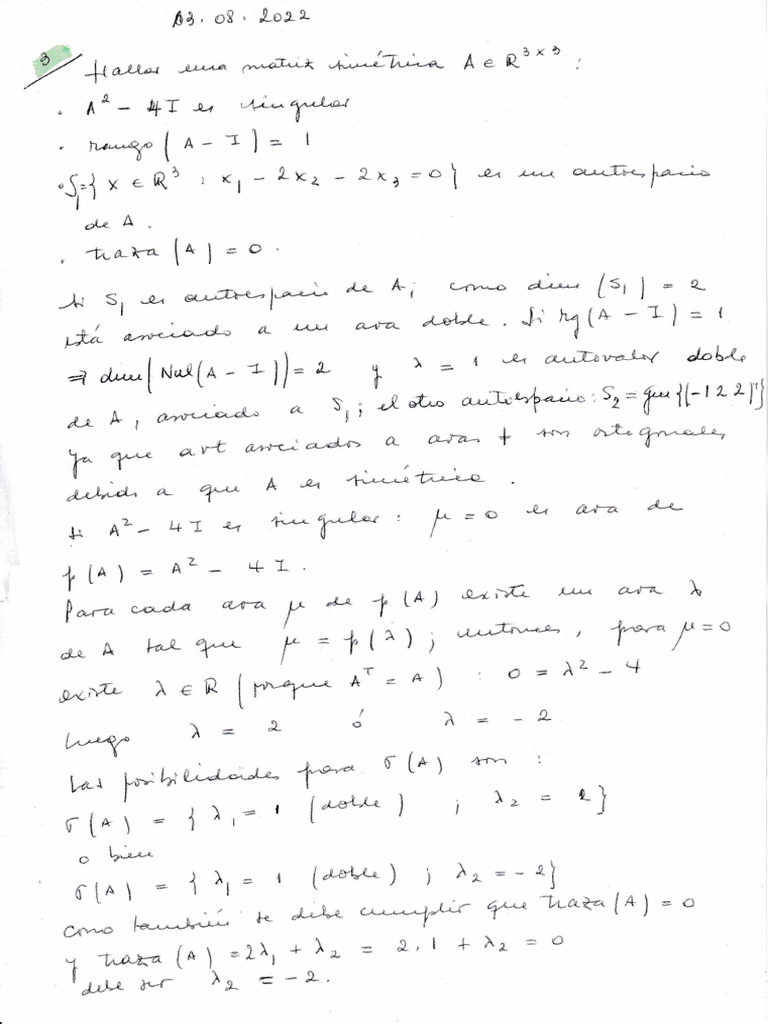 03.08.2022
3 Hallar una matriz simétrica A ∈ R^{3×3} :
. A² - 4I es singular
. rango (A - I) = 1
. S₁={ x ∈ R³ : x₁ - 2x₂ - 2x₃ = 0 } es un autoespacio
de A.
. traza (A) = 0.
Si S₁ es autoespacio de A, como dim (S₁) = 2
está asociado a un ava doble. Si rg(A - I) = 1
⇒ dim(Nul(A - I)) = 2 y λ = 1 es autovalor doble
de A, asociado a S₁; el otro autoespacio: S₂ = gen{(-1 2 2)ᵀ}
Ya que avt asociados a avas ≠ son ortogonales
debido a que A es simétrica.
Si A² - 4I es singular : μ = 0 es ava de
p(A) = A² - 4I.
Para cada ava μ de p(A) existe un ava λ
de A tal que μ = p(λ); entonces, para μ=0
existe λ ∈ R (porque Aᵀ = A) : 0 = λ² - 4
Luego λ = 2 ó λ = -2
Las posibilidades para σ(A) son :
σ(A) = { λ₁ = 1 (doble) ; λ₂ = 2 }
o bien
σ(A) = { λ₁ = 1 (doble) ; λ₂ = -2}
Como también se debe cumplir que traza(A) = 0
y traza(A) = 2λ₁ + λ₂ = 2.1 + λ₂ = 0
debe ser λ₂ = -2.